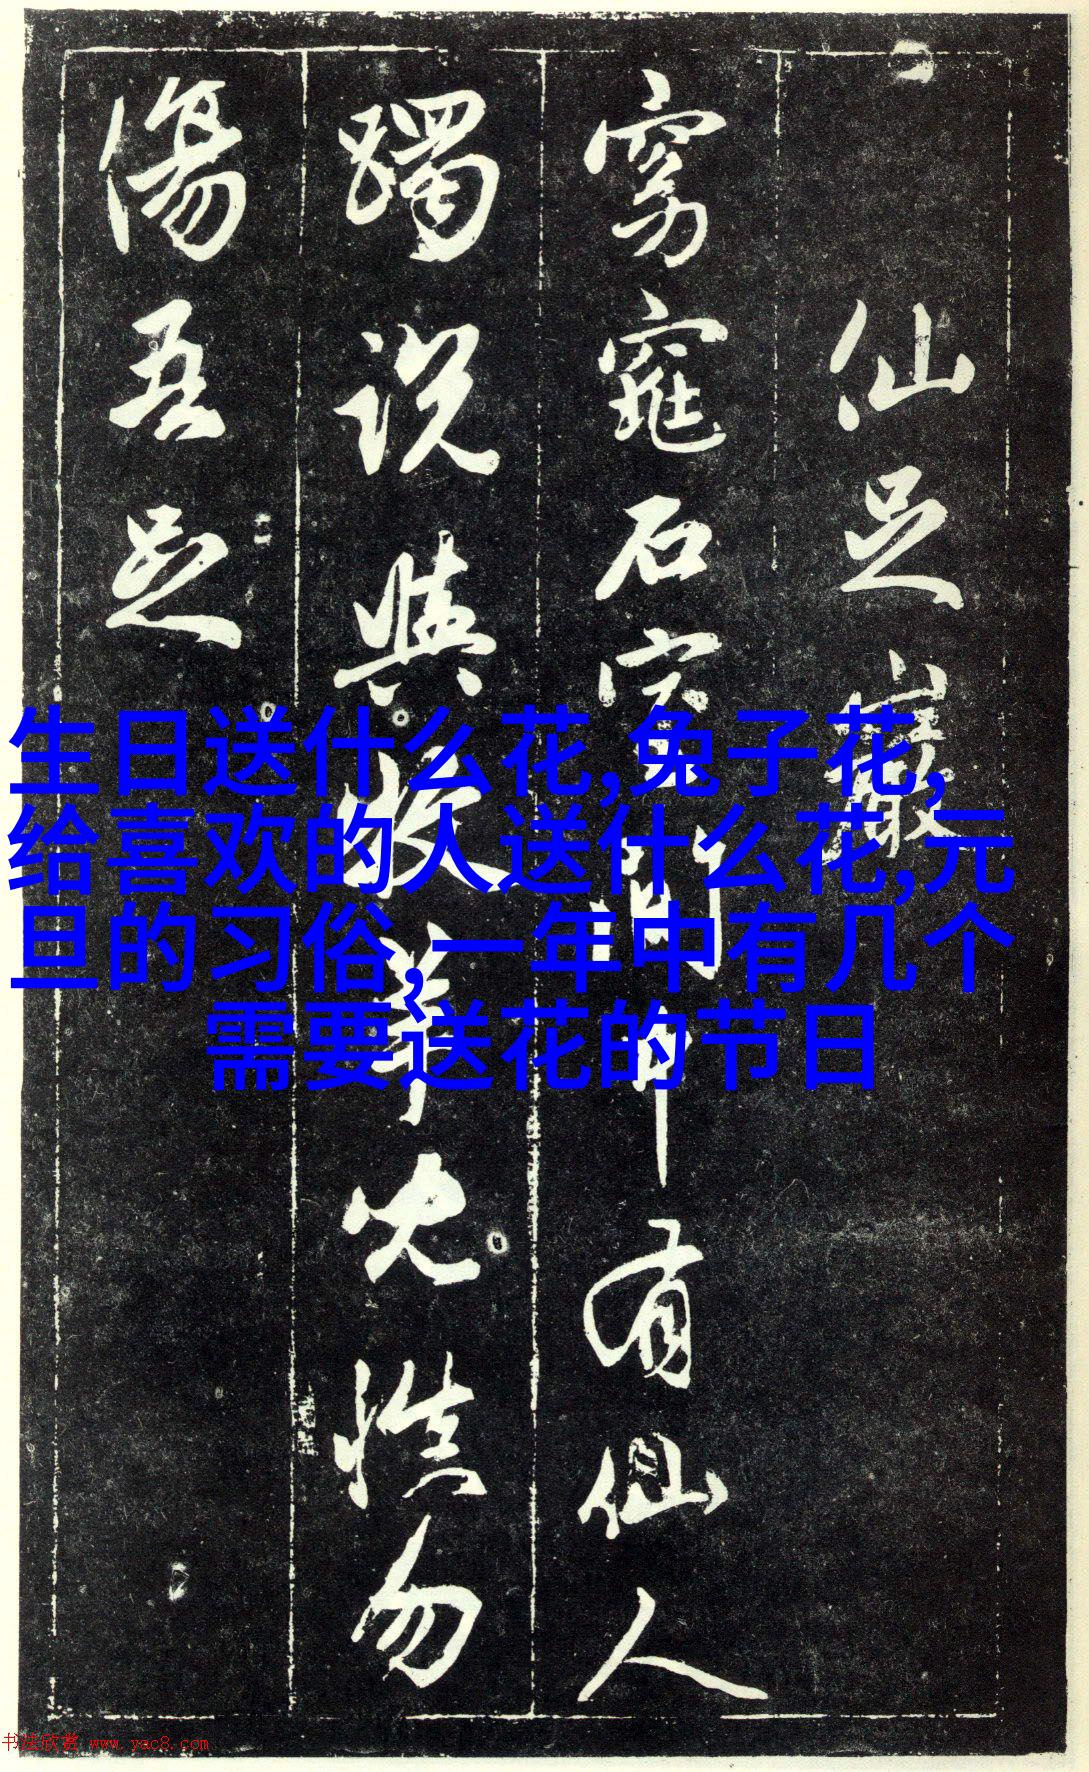 仙足巖
窈窕石室間中有仙人
躅說與牧羊兒慎勿
傷吾足
生日送什么花,兔子花,
给喜欢的人送什么花,元
旦的习俗,一年中有几个
需要送花的节日
书法欣赏 www.yac8.com